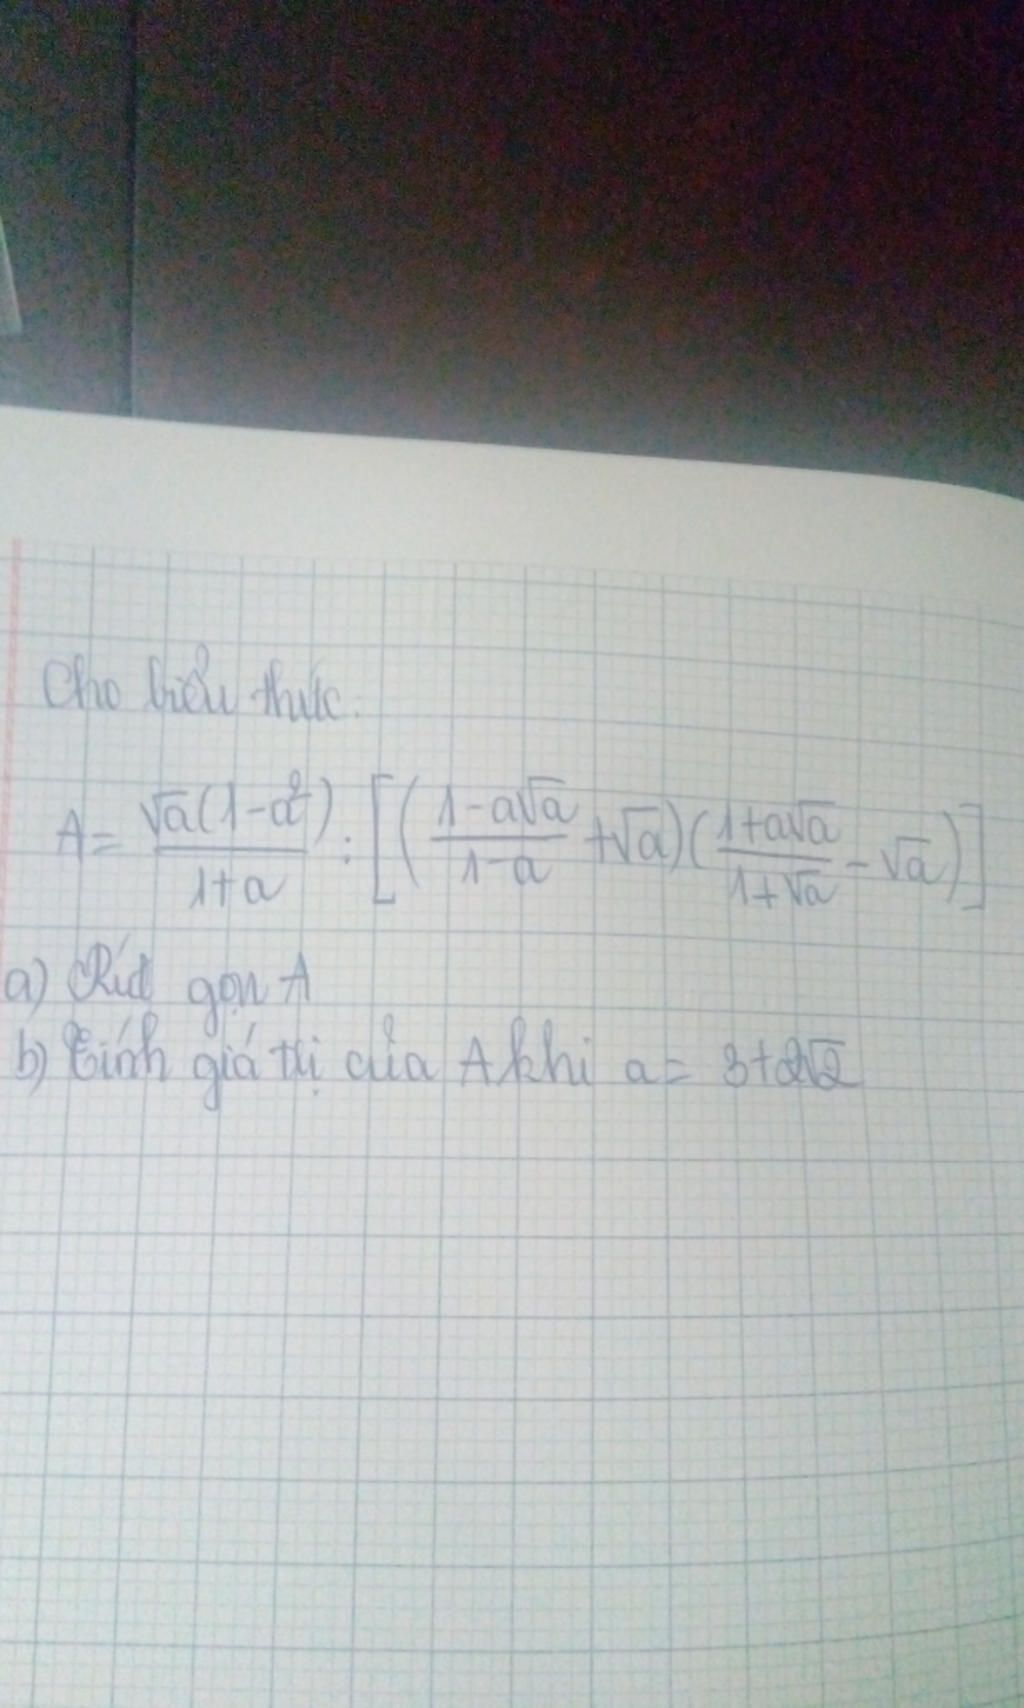 Cho biểu thức.
A = \frac{\sqrt{a}(1-a^2)}{1+a} : \left[\left(\frac{1-a\sqrt{a}}{1-a}+\sqrt{a}\right)\left(\frac{1+a\sqrt{a}}{1+\sqrt{a}}-\sqrt{a}\right)\right]
a) Rút gọn A
b) Tính giá trị của A khi a = 3+2\sqrt{2}